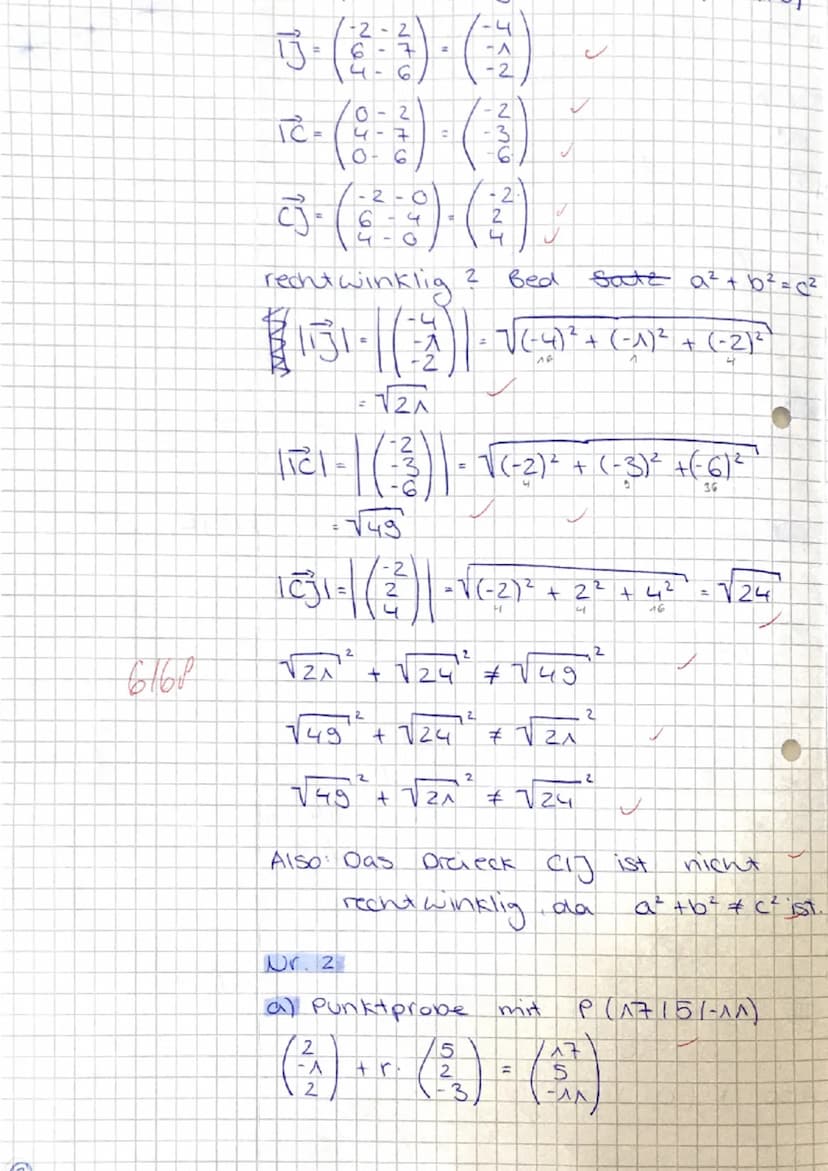 →IJ = (-2 - 2 / 6 - 7 / 4 - 6) = (-4 / -1 / -2) ✓
→IC = (0 - 2 / 4 - 7 / 0 - 6) = (-2 / -3 / -6) ✓ ✓
→CJ = (-2 - 0 / 6 - 4 / 4 - 0) = (-2 / 2 / 4) ✓ ✓
rechtwinklig? Bed a² + b² = c²
|→IJ| = |(-4 / -1 / -2)| = √((-4)² + (-1)² + (-2)²)
16 1 4
= √21 ✓
|→IC| = |(-2 / -3 / -6)| = √((-2)² + (-3)² + (-6)²)
4 9 36
= √49 ✓ ✓
|→CJ| = |(-2 / 2 / 4)| = √((-2)² + 2² + 4²) = √24 ✓
4 4 16
√21² + √24² ≠ √49² ✓
6/6P
√49² + √24² ≠ √21² ✓
√49² + √21² ≠ √24² ✓
Also: Das Dreieck CIJ ist nicht ✓
rechtwinklig, da a² + b² ≠ c² ist.
Nr. 2
a) Punktprobe mit P(17|5|-11)
(2 / -1 / 2) + r · (5 / 2 / -3) = (17 / 5 / -11) ✓